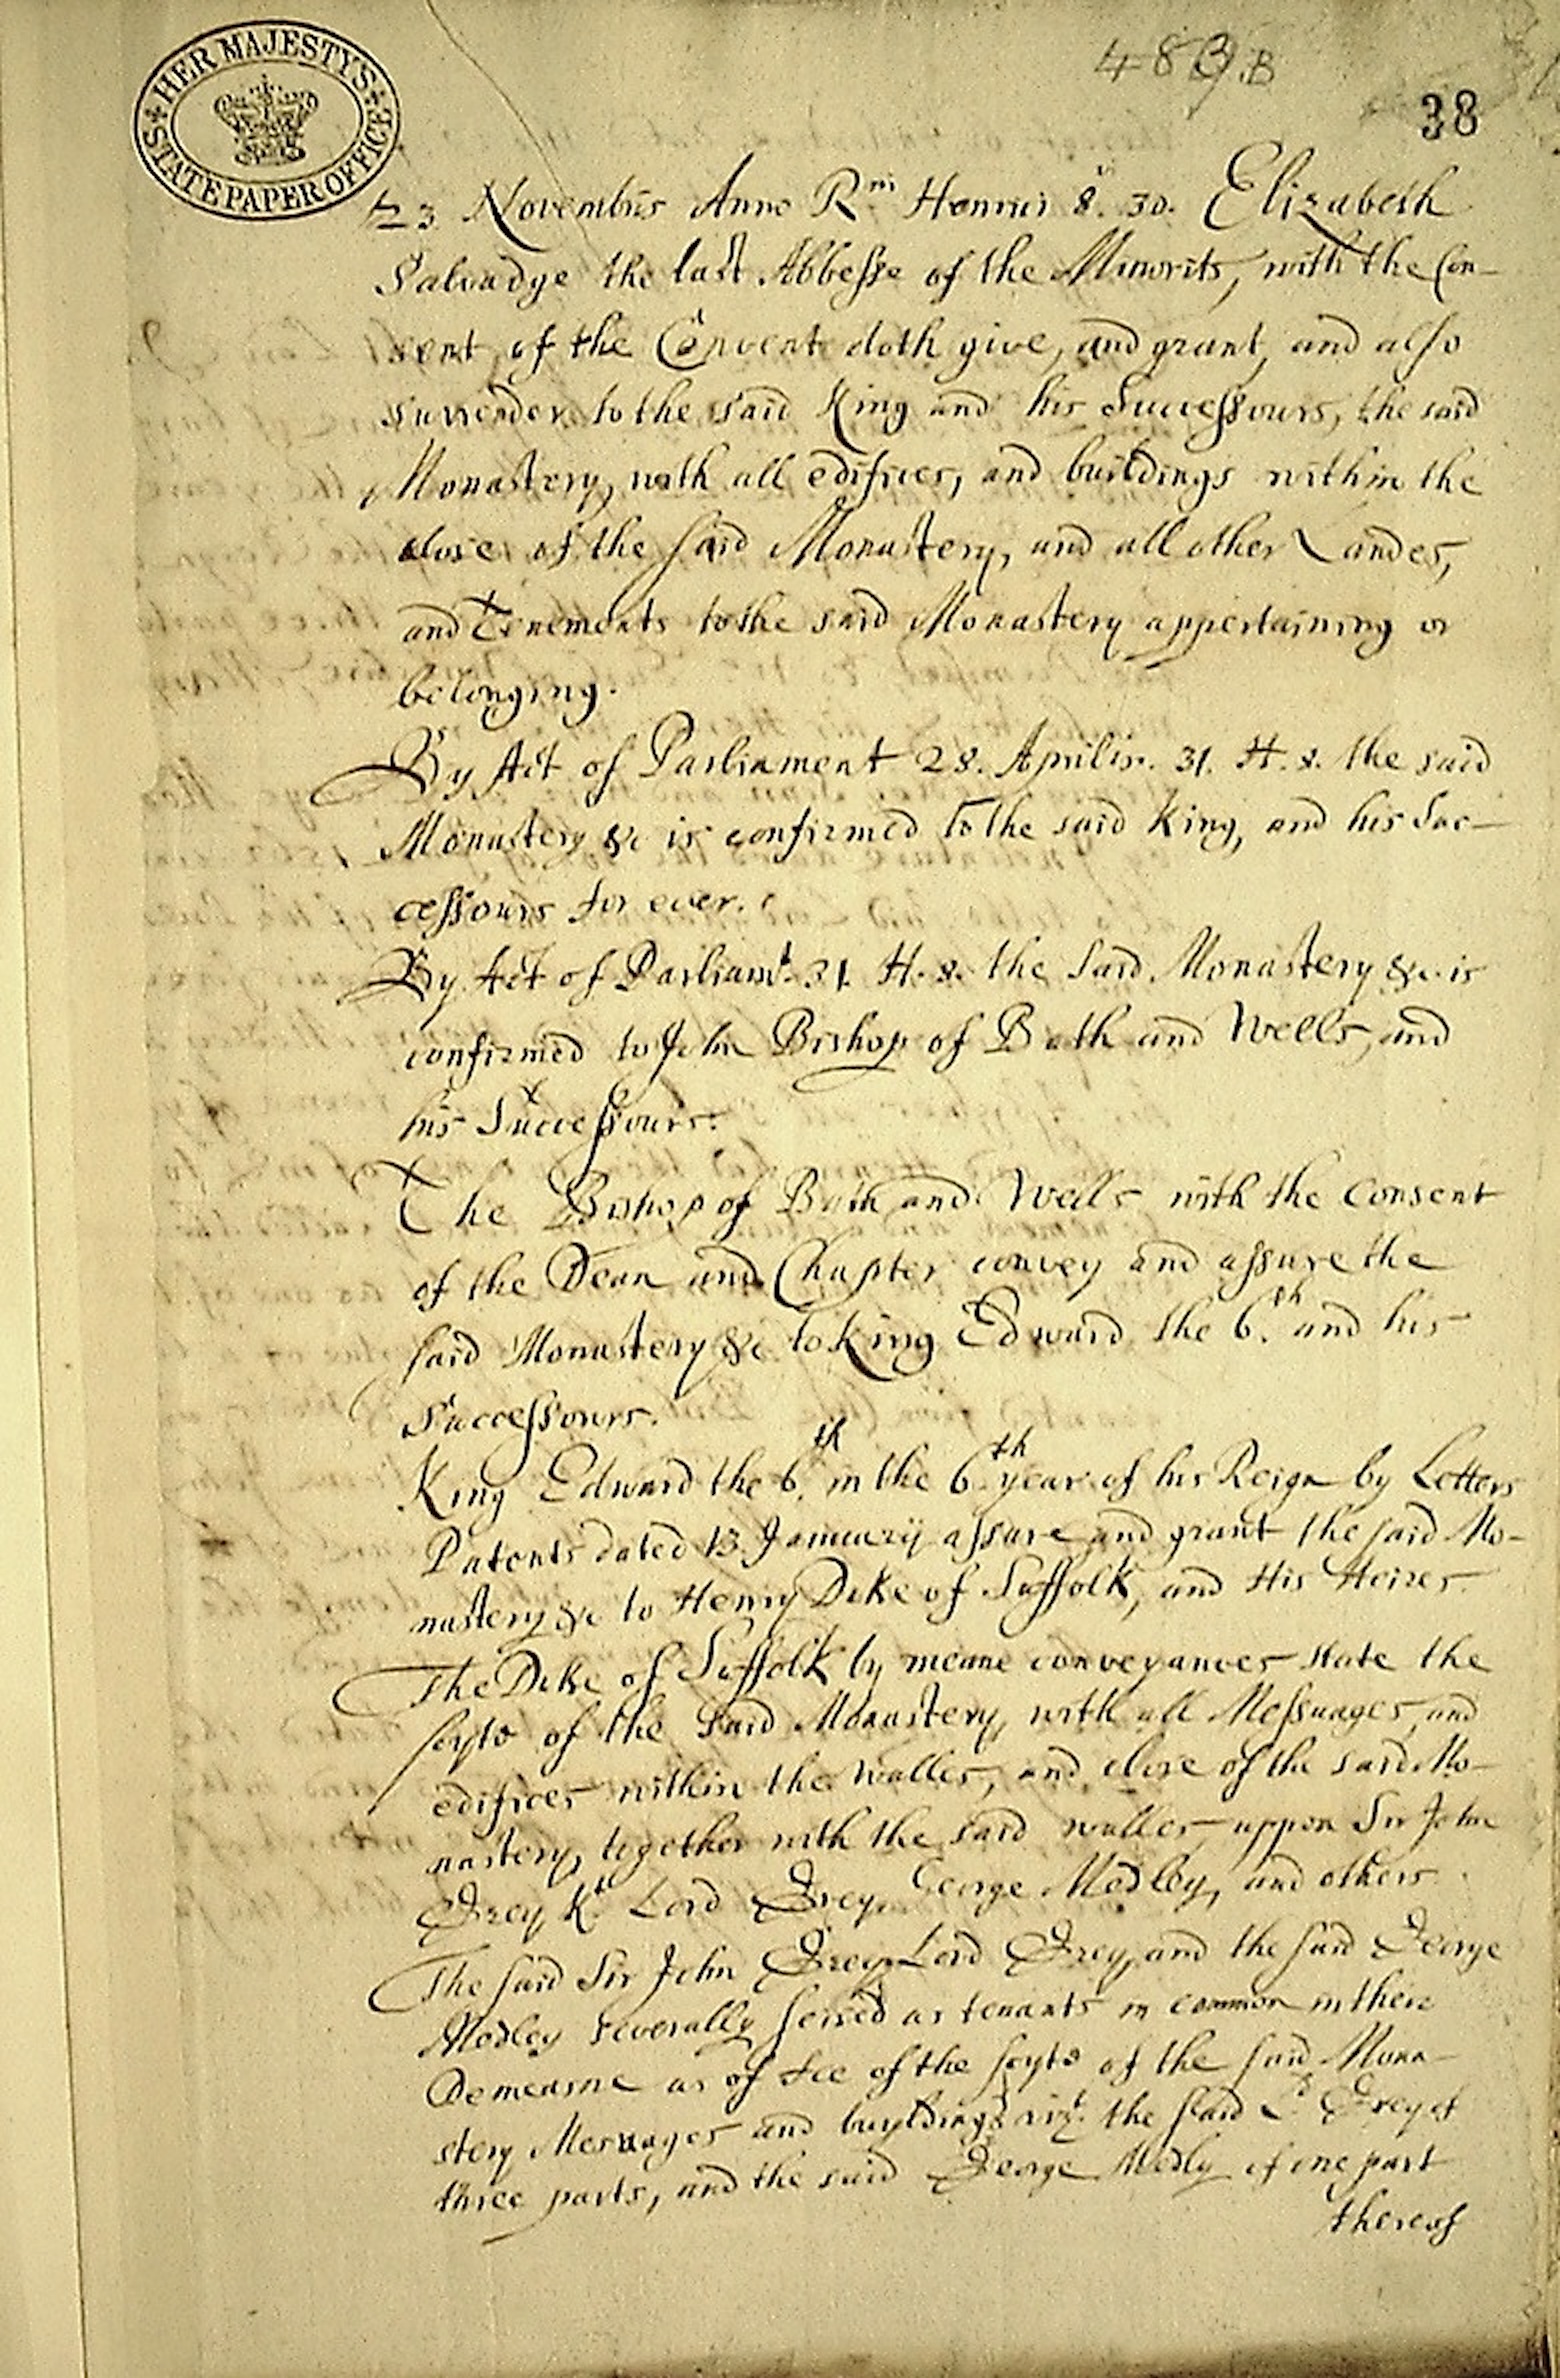 HER MAJESTY'S STATE PAPER OFFICE
38
23 Novembris Anno Rni Henrici 8. 30. Elizabeth
Salvadge the last Abbesse of the Minorits, with the Con-
sent of the Convent doth give, and grant, and also
surrender to the said King and his Successours, the said
Monastery, with all edifices, and buildings within the
close of the said Monastery, and all other Landes,
and Tenements to the said Monastery appertaining or
belonging.
By Act of Parliament 28. Aprilis. 31. H. 8. the said
Monastery &c is confirmed to the said King, and his Suc-
cessours for ever.
By Act of Parliamt. 31. H. 8. the said Monastery &c. is
confirmed to John Bishop of Bath and Wells, and
his Successours.
The Bishop of Bath and Wells with the Consent
of the Dean and Chapter convey and assure the
said Monastery &c to King Edward the 6.th and his
Successours.
King Edward the 6.th in the 6.th year of his Reign by Letters
Patents dated 13. January assure and grant the said Mo-
nastery &c to Henry Duke of Suffolk, and His Heires.
The Duke of Suffolk by meane conveyances state the
scyte of the said Monastery, with all Messuages, and
edifices within the walles, and close of the said Mo-
nastery, together with the said walles, uppon Sir John
Grey Kt. Lord Grey, George Medley, and others.
The said Sir John Grey Lord Grey, and the said George
Medley severally seised as tenants in common in their
Demeasne as of Fee of the scyte of the said Mona-
stery Messuages and buyldings vizt. the said Ld. Grey of
three parts, and the said George Medly of one part
thereof